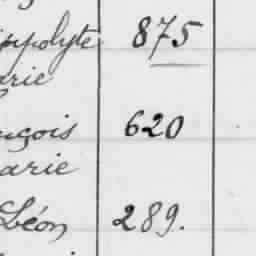 ippolyte 875
arie
nçois 620
arie
Léon 289.